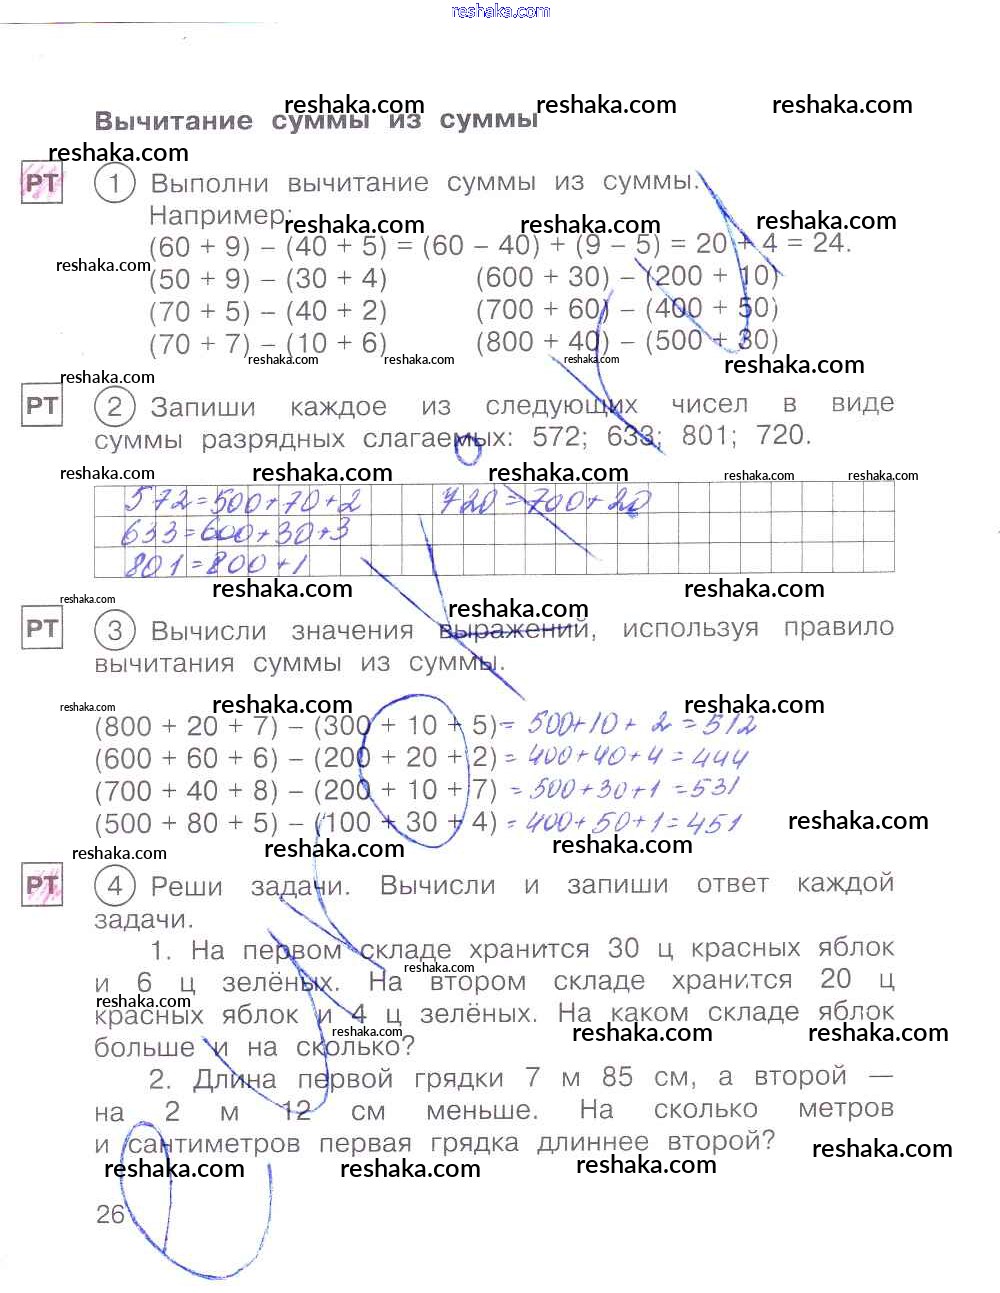 reshaka.com
reshaka.com reshaka.com reshaka.com
Вычитание суммы из суммы
reshaka.com
РТ 1 Выполни вычитание суммы из суммы.
Например:
reshaka.com reshaka.com reshaka.com
(60 + 9) – (40 + 5) = (60 – 40) + (9 – 5) = 20 + 4 = 24.
reshaka.com
(50 + 9) – (30 + 4) (600 + 30) – (200 + 10)
(70 + 5) – (40 + 2) (700 + 60) – (400 + 50)
(70 + 7) – (10 + 6) (800 + 40) – (500 + 30)
reshaka.com reshaka.com reshaka.com reshaka.com
reshaka.com
РТ 2 Запиши каждое из следующих чисел в виде
суммы разрядных слагаемых: 572; 633; 801; 720.
reshaka.com reshaka.com reshaka.com reshaka.com reshaka.com
572=500+70+2 720=700+20
633=600+30+3
801=800+1
reshaka.com reshaka.com
reshaka.com reshaka.com
РТ 3 Вычисли значения выражений, используя правило
вычитания суммы из суммы.
reshaka.com reshaka.com reshaka.com
(800 + 20 + 7) – (300 + 10 + 5)= 500+10+2=512
(600 + 60 + 6) – (200 + 20 + 2)= 400+40+4=444
(700 + 40 + 8) – (200 + 10 + 7)= 500+30+1=531
(500 + 80 + 5) – (100 + 30 + 4)= 400+50+1=451
reshaka.com
reshaka.com reshaka.com reshaka.com
РТ 4 Реши задачи. Вычисли и запиши ответ каждой
задачи.
1. На первом складе хранится 30 ц красных яблок
reshaka.com
и 6 ц зелёных. На втором складе хранится 20 ц
reshaka.com
красных яблок и 4 ц зелёных. На каком складе яблок
reshaka.com reshaka.com reshaka.com
больше и на сколько?
2. Длина первой грядки 7 м 85 см, а второй —
на 2 м 12 см меньше. На сколько метров
и сантиметров первая грядка длиннее второй?
reshaka.com reshaka.com reshaka.com reshaka.com
26